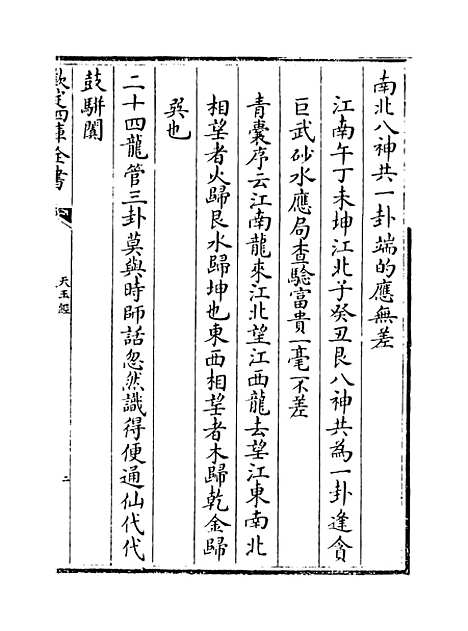 南北八神共一卦端的應無差
江南午丁未坤江北子癸丑艮八神共為一卦逢貪
巨武砂水應局查驗富貴一毫不差
青囊序云江南龍來江北望江西龍去望江東南北
相望者火歸艮水歸坤也東西相望者木歸乾金歸
巽也
二十四龍管三卦莫與時師話忽然識得便通仙代代
鼓駢闐
欽定四庫全書
天玉經
二